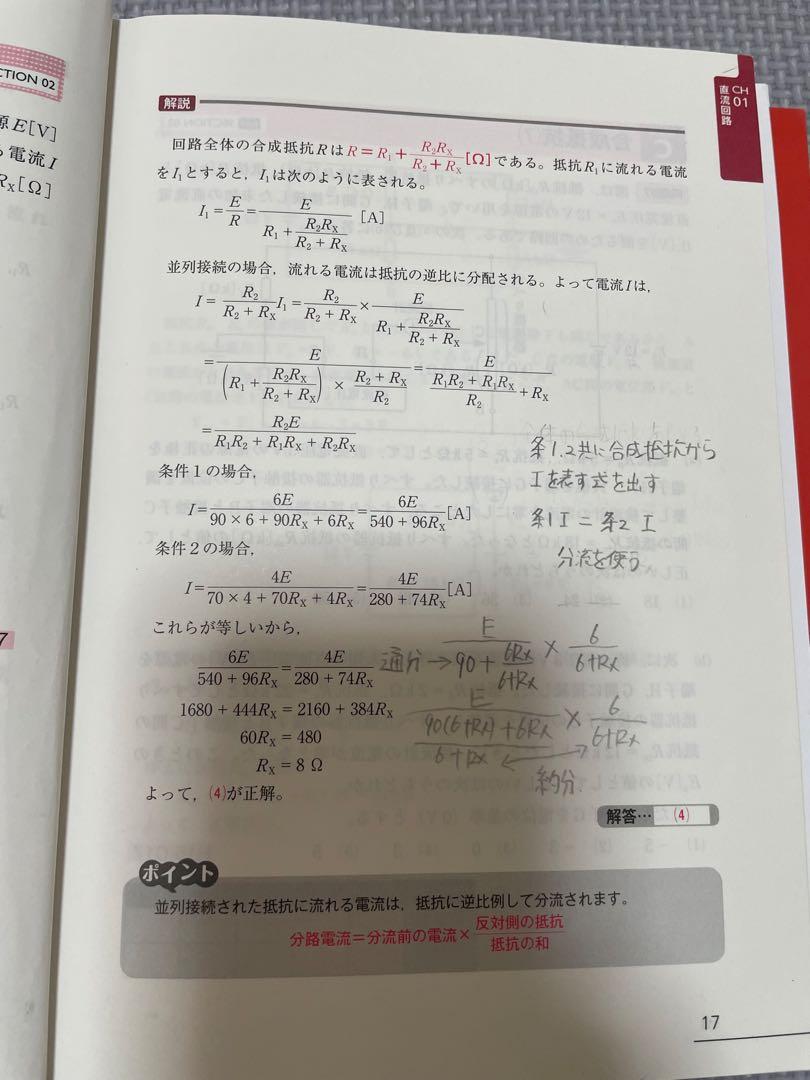 CTION 02
源E[V]
電流I
Rx[Ω]
CH 01
直流回路
解説
回路全体の合成抵抗RはR=R₁+R₂Rx/(R₂+Rx)[Ω]である。抵抗R₁に流れる電流
をI₁とすると,I₁は次のように表される。
I₁=E/R=E/(R₁+R₂Rx/(R₂+Rx)) [A]
並列接続の場合,流れる電流は抵抗の逆比に分配される。よって電流Iは,
I=R₂/(R₂+Rx)I₁=R₂/(R₂+Rx)×E/(R₁+R₂Rx/(R₂+Rx))
=E/((R₁+R₂Rx/(R₂+Rx))×(R₂+Rx)/R₂)=E/((R₁R₂+R₁Rx)/R₂+Rx)
=R₂E/(R₁R₂+R₁Rx+R₂Rx)
条件1の場合,
I=6E/(90×6+90Rx+6Rx)=6E/(540+96Rx)[A]
条件2の場合,
I=4E/(70×4+70Rx+4Rx)=4E/(280+74Rx)[A]
これらが等しいから,
6E/(540+96Rx)=4E/(280+74Rx)
1680+444Rx=2160+384Rx
60Rx=480
Rx=8 Ω
よって,(4)が正解。
条1.2共に合成抵抗から
Iを表す式を出す
条1 I = 条2 I
分流を使う
通分→E/(90+6Rx/(6+Rx))×6/(6+Rx)
E/((90(6+Rx)+6Rx)/(6+Rx))×6/(6+Rx)
約分
解答…(4)
ポイント
並列接続された抵抗に流れる電流は,抵抗に逆比例して分流されます。
分路電流=分流前の電流×反対側の抵抗/抵抗の和
17